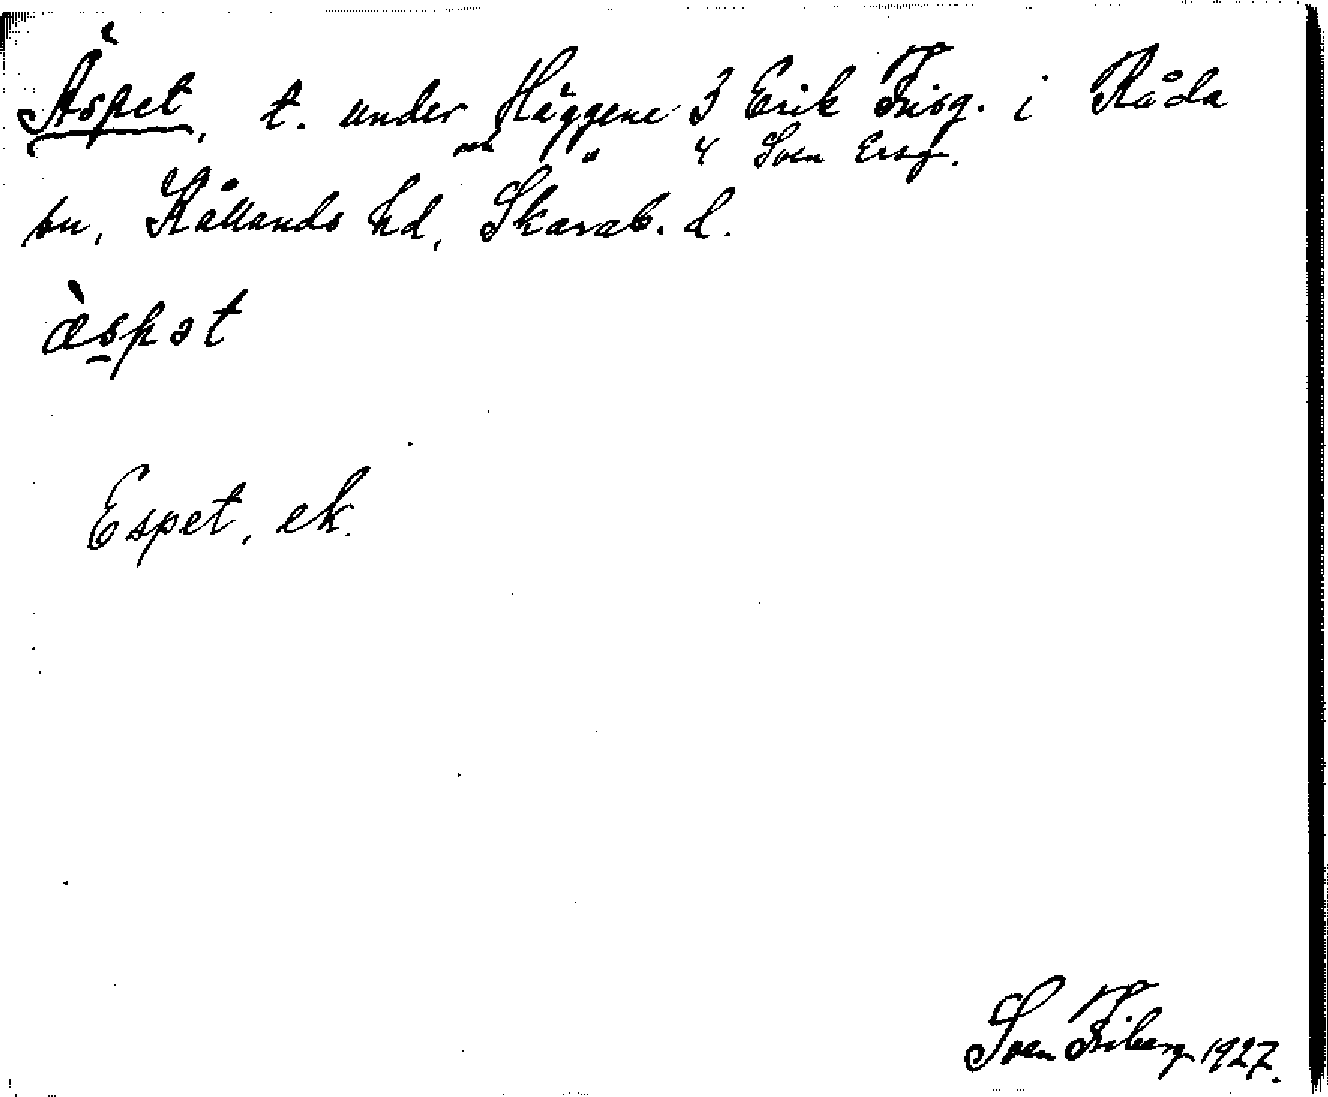 Äspet, t. under Häggene 3 Erik Frisg. i Råda
och " 4 Sven Ersg.
sn, Kållands hd, Skarab. l.
æ̀spət
Espet, ek.
Sven Fiberg 1927.